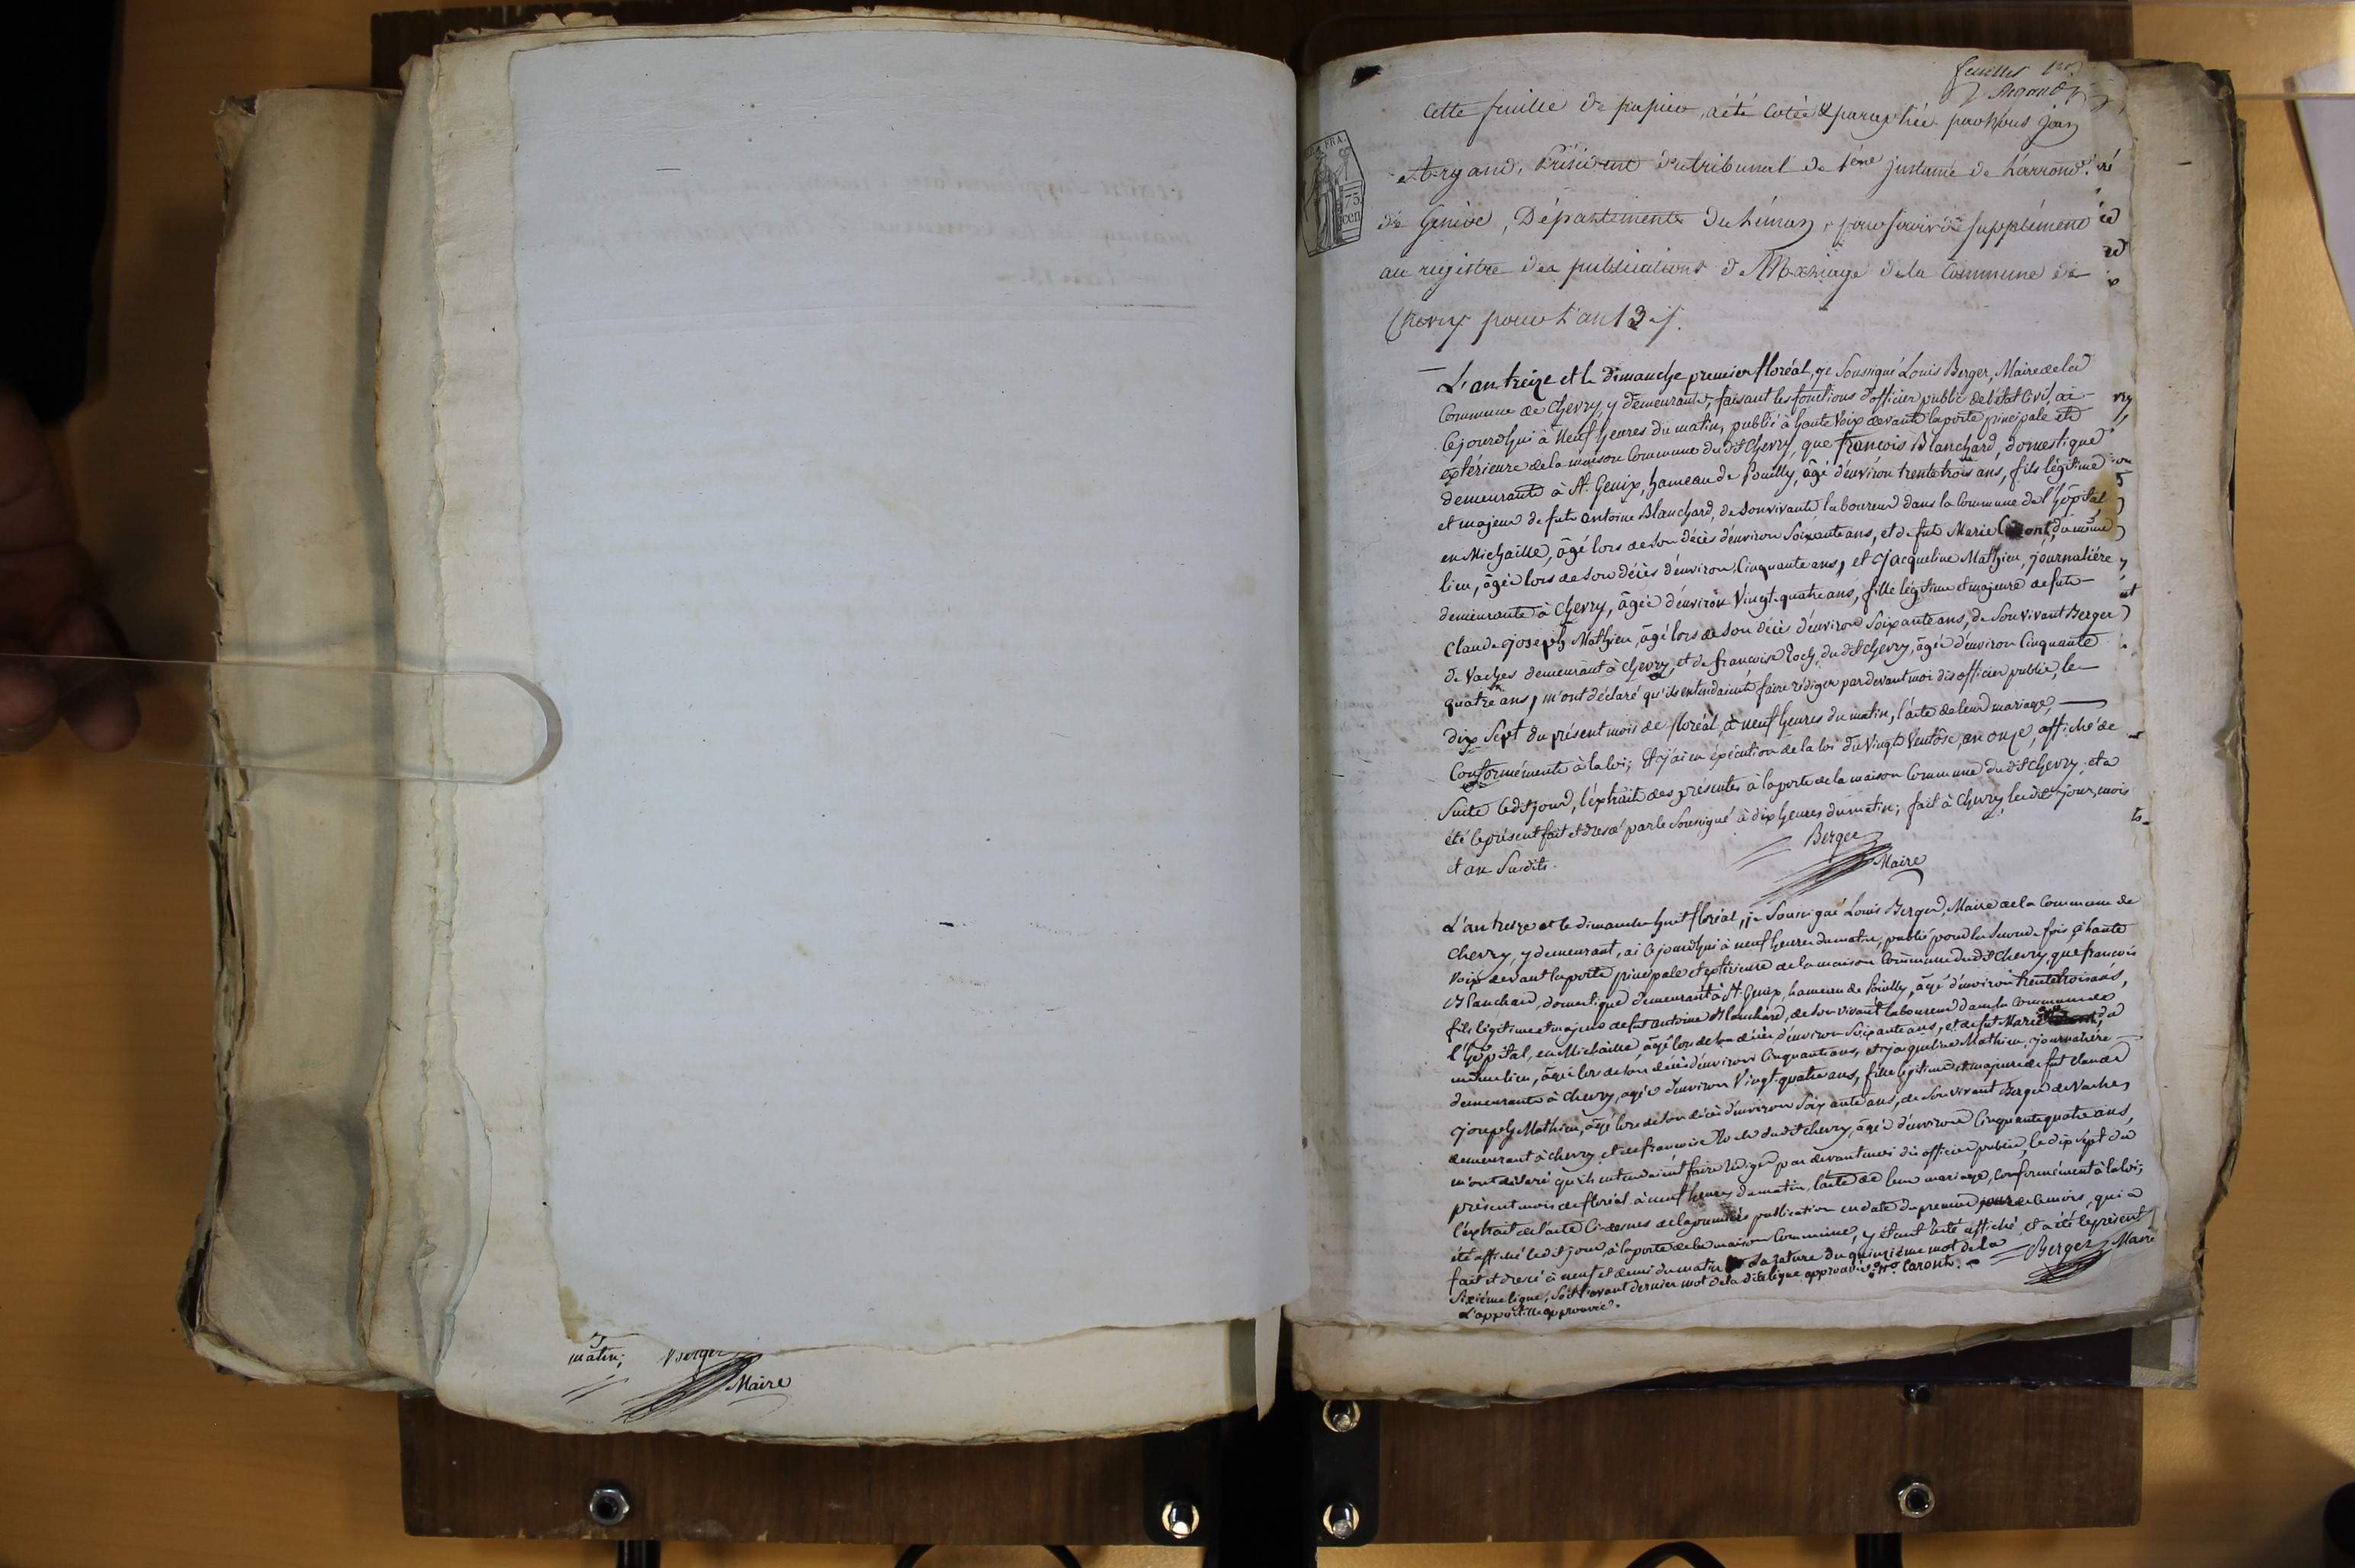 matin; Berger
Maire
feuillet 1er.
Argand
Cette feuille de papier, a été cotée & paraphée par Nous Jean
Argand, Président du tribunal de 1ere instance de L'arrondt.
de Genève, Département du Léman, pour servir de supplément
au registre des publications de Mariage de la Commune de
Chevry pour L'an 13
RE. FRA.
75
cen
L'an treize et le dimanche premier floréal, je Soussigné Louis Berger, Maire de la
Commune de Chevry, y demeurant, faisant les fonctions d'officier public de l'état Civil, ai
Cejourdhui à Neuf heures du matin, publié à haute Voix devant la porte principale et
extérieure de la maison Commune dudt Chevry, que françois Blanchard, domestique
demeurant à St. Genix, hameau de Pouilly, âgé d'environ trente trois ans, fils légitime
et majeur de fut antoine Blanchard, de Son vivant laboureur dans la Commune de l'hôpital
en Michaille, âgé lors de Son décès d'environ Soixante ans, et de fut Marie du même
lieu, âgée lors de Son décès d'environ Cinquante ans, et Jacqueline Mathieu, journaliére
demeurante à Chevry, âgée d'environ Vingt-quatre ans, fille légitime et majeure de fut
Claude Joseph Mathieu, âgé lors de Son décès d'environ Soixante ans, de Son vivant Berger
de Vaches demeurant à Chevry, et de francoise Roch, dudt Chevry, âgée d'environ Cinquante
quatre ans, m'ont déclaré qu'ils entendaient faire rédiger pardevant moi dis officier public, le
dix Sept du présent mois de floréal, à neuf heures du matin, l'acte de leur mariage,
Conformément à la loi; Et j'ai en éxécution de la loi du Vingt Ventôse, an onze, affiché de
Suite ledt jour, l'éxtrait des présentes à la porte de la maison Commune dudt Chevry, et a
été le présent fait et dressé par le Soussigné à dix heures du matin; fait à Chevry, les dits jour, mois
et an Susdits.
Berger
Maire
L'an treize et le dimanche huit floréal, je Soussigné Louis Berger, Maire de la Commune de
Chevry, y demeurant, ai Cejourdhui à neuf heures du matin, publié pour la Seconde fois, à haute
Voix devant la porte principale et extérieure de la maison Commune dudt Chevry, que francois
Blanchard, domestique demeurant à St. Genix, hameau de Pouilly, âgé d'environ trente trois ans,
fils légitime et majeur de fut antoine Blanchard, de Son vivant laboureur dans la Commune de
l'hôpital, en Michaille, âgé lors de Son décès d'environ Soixante ans, et de fut Marie du
même lieu, âgée lors de Son décès d'environ Cinquante ans, et Jaqueline Mathieu, journaliére
demeurante à Chevry, agée d'environ Vingt-quatre ans, fille légitime et majeure de fut Claude
Joseph Mathieu, âgé lors de Son décès d'environ Soixante ans, de Son vivant Berger de Vaches
demeurant à Chevry, et de francoise Roch dudt Chevry, âgée d'environ Cinquante quatre ans,
m'ont déclaré qu'ils entendaient faire rédiger par devant moi dis officier public, le dix Sept du
présent mois de floréal à neuf heures du matin, l'acte de leur mariage, Conformément à la loi;
l'éxtrait de l'acte Ci-dessus de la premiére publication en date du premier jour de Ce mois, qui a
été affiché ledt jour, à la porte de la maison Commune, y étant resté affiché, et a été le présent
fait et dressé à neuf et demi du matin la rature du quinziéme mot de la Berger Maire
Sixiéme ligne, Soit l'avant dernier mot de la dite ligne approuvée Caront.
L'appostille approuvée.